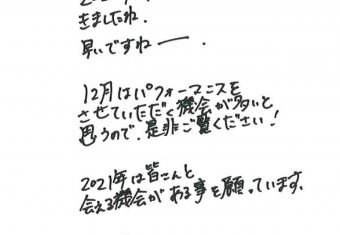 きましたね.
早いですねー.
12月はパフォーマンスを
させていただく機会が多いと
思うので、是非ご覧ください!
2021年は皆さんと
会える機会がある事を願っています.